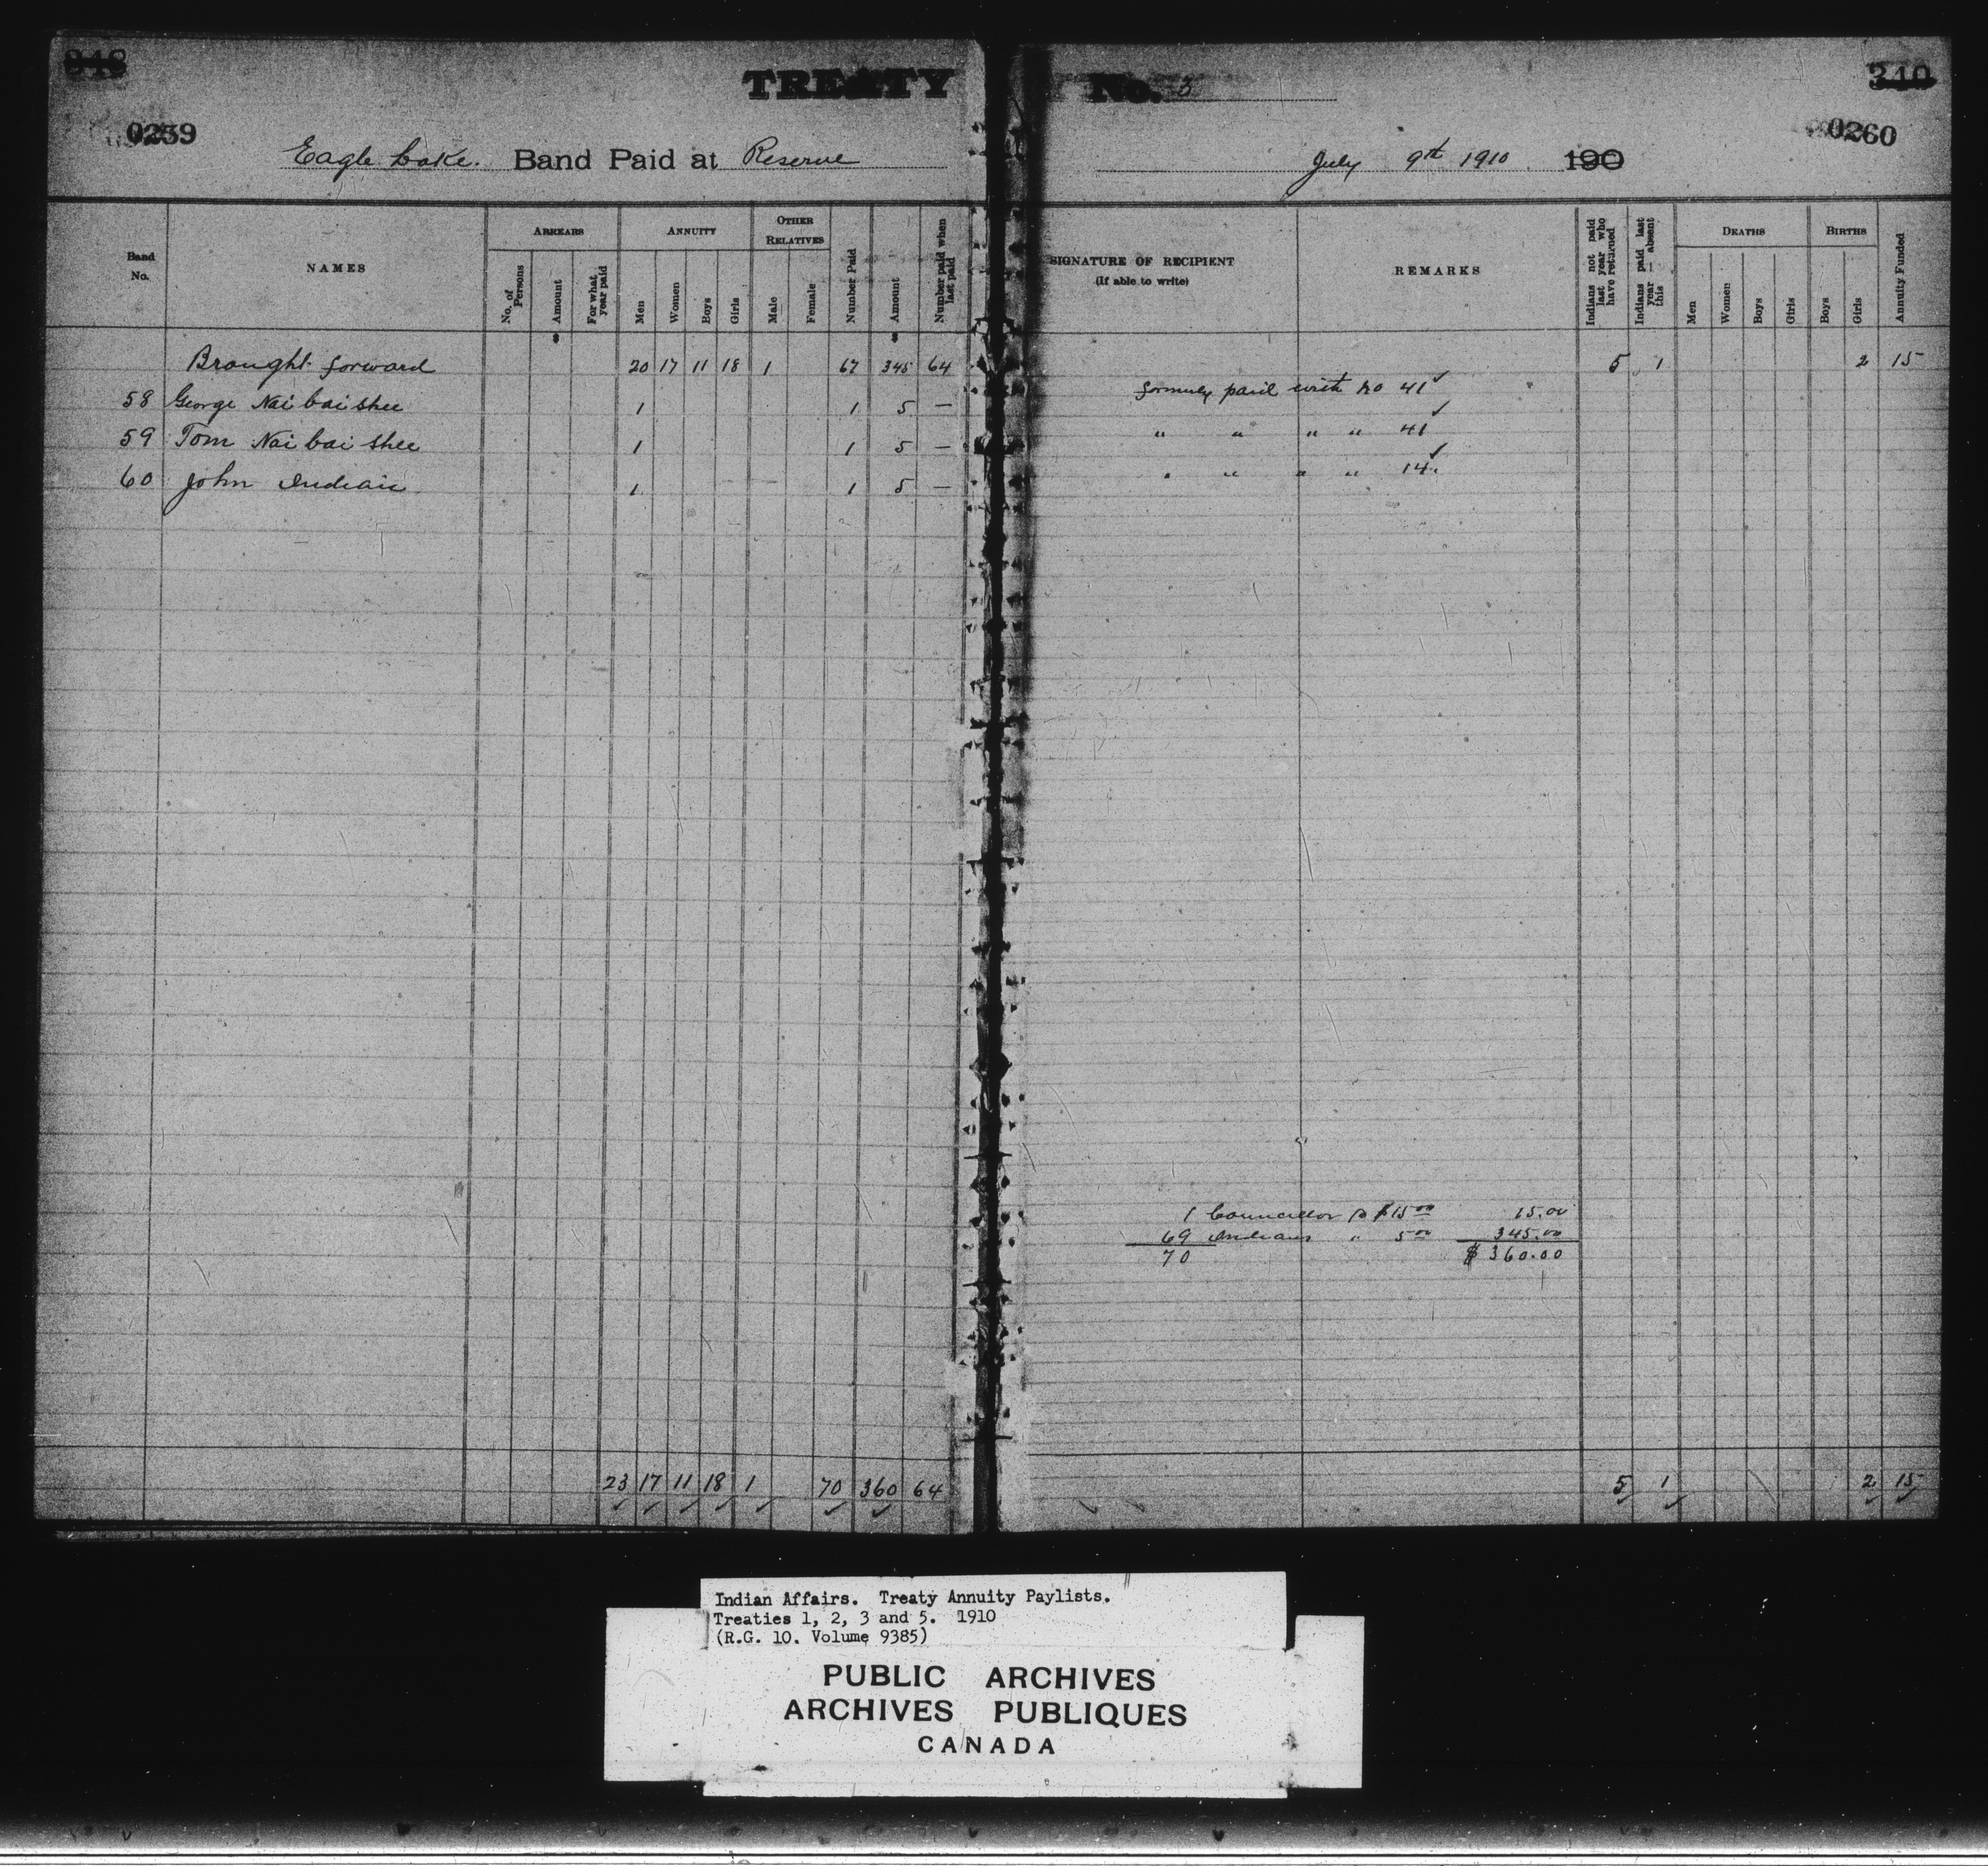 TREATY No. 3
340
0259
0260
Eagle Lake. Band Paid at Reserve
July 9th 1910. 190
Band No.
NAMES
ARREARS
No. of Persons
Amount
For what year paid
ANNUITY
Men
Women
Boys
Girls
OTHER RELATIVES
Male
Female
Number Paid
Amount
Number paid when last paid
SIGNATURE OF RECIPIENT
(If able to write)
REMARKS
Indians not paid last year who have returned
Indians paid last year — absent this
DEATHS
Men
Women
Boys
Girls
BIRTHS
Boys
Girls
Annuity Funded
$ $
Brought forward 20 17 11 18 1 67 345 64 5 1 2 15
58 George Nai bai shee 1 1 5 — formerly paid with No 41 ✓
59 Tom Nai bai shee 1 1 5 — " " " " 41 ✓
60 John Indian 1 1 5 — " " " " 14. ✓
1 Councillor @ $15.00 15.00
69 Indians " 5.00 345.00
70 $360.00
23 17 11 18 1 70 360 64 5 1 2 15
Indian Affairs. Treaty Annuity Paylists.
Treaties 1, 2, 3 and 5. 1910
(R.G. 10. Volume 9385)
PUBLIC ARCHIVES
ARCHIVES PUBLIQUES
CANADA